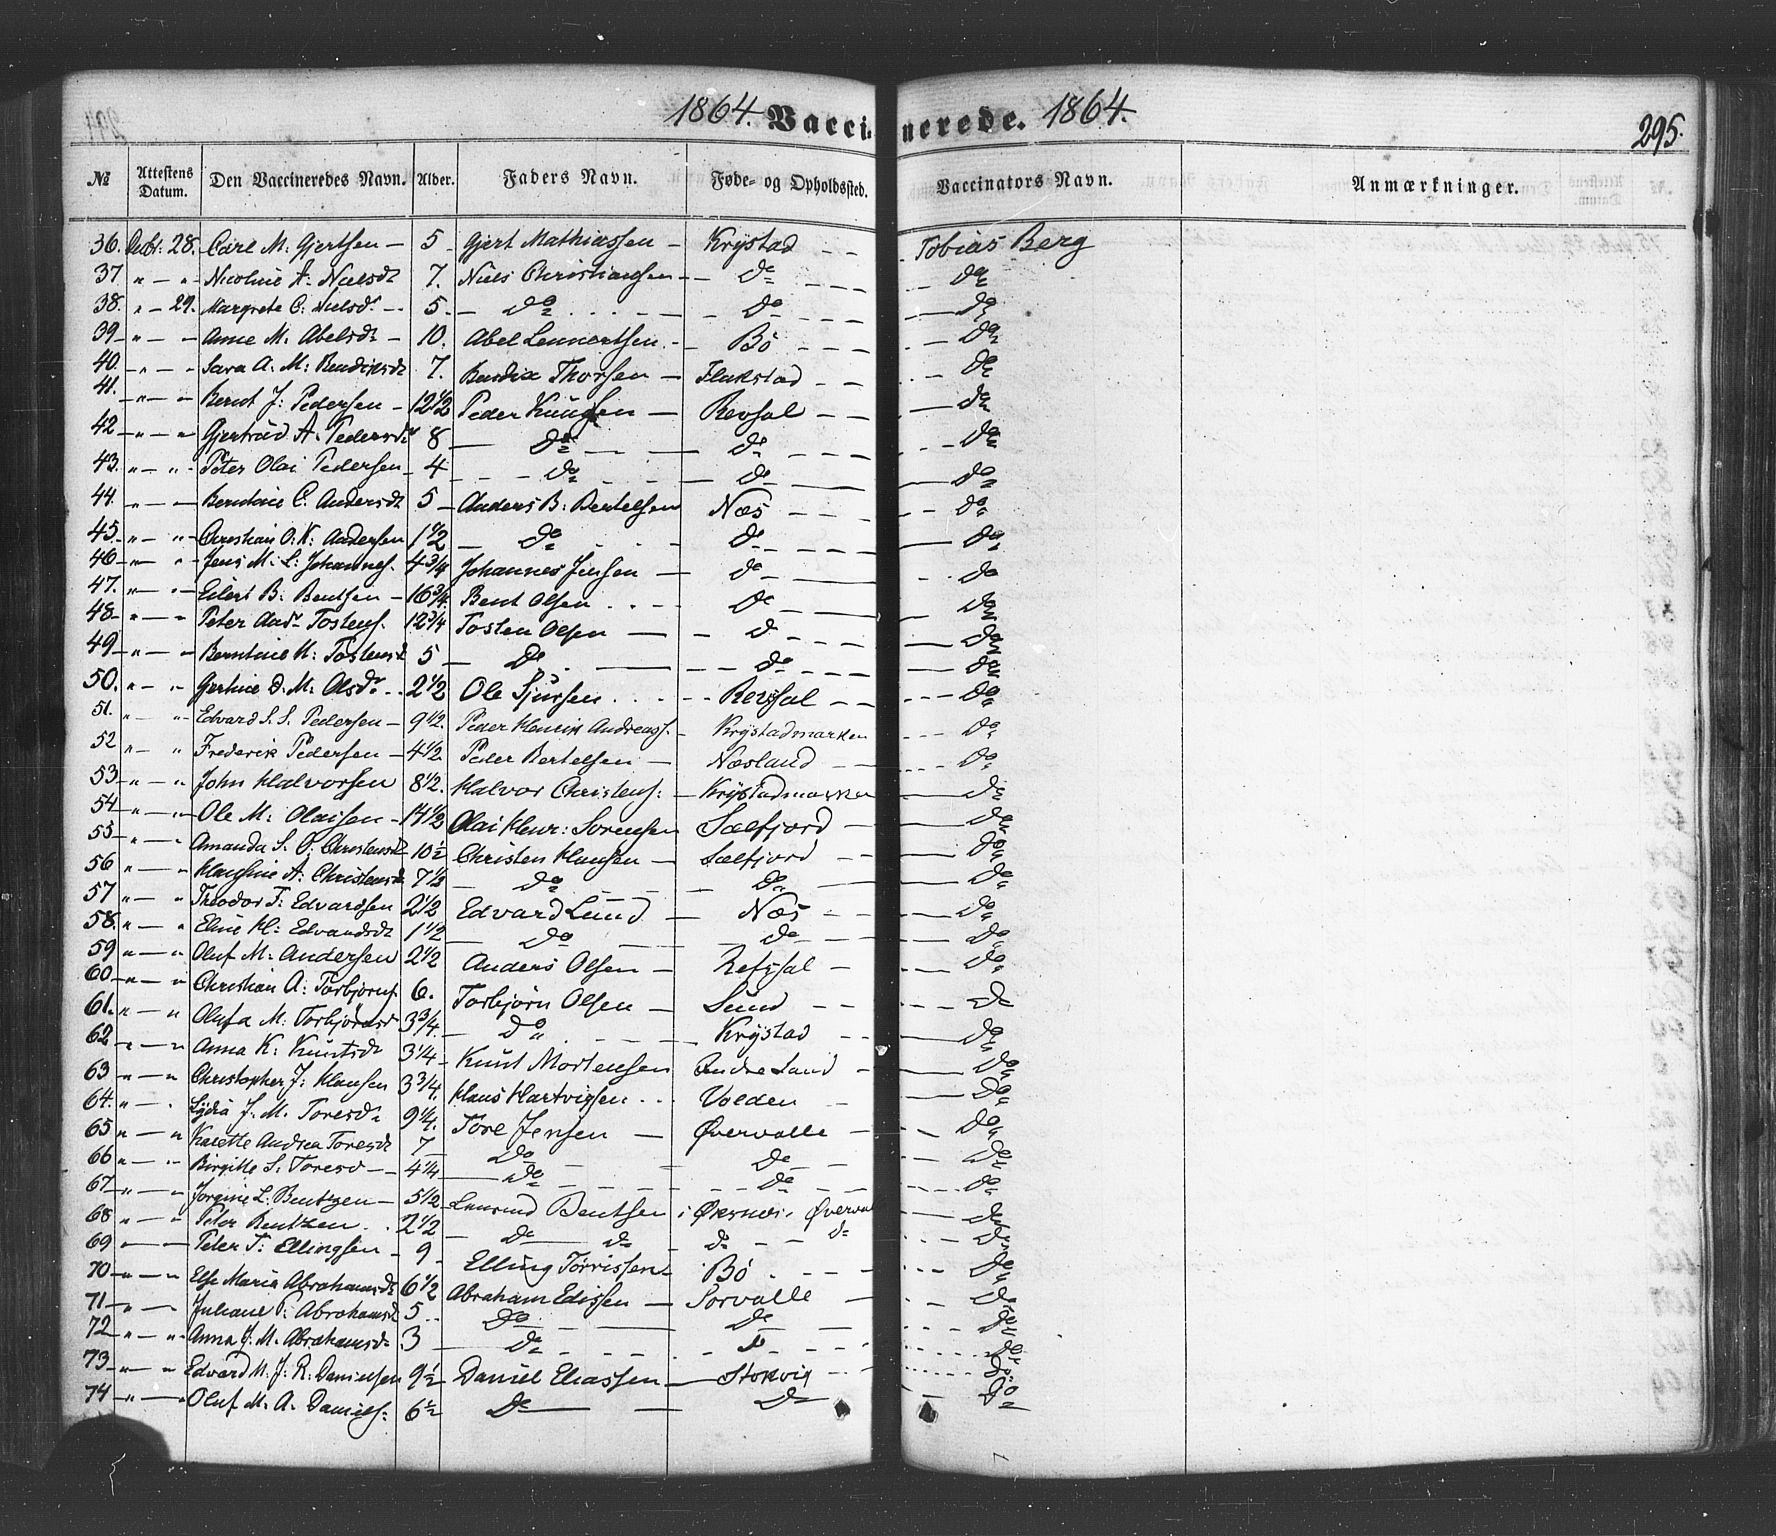 1864. Vaccinerede. 1864.
295.
№ Attestens Datum. Den Vaccineredes Navn. Alder. Faders Navn. Føde- og Opholdssted. Vaccinators Navn. Anmærkninger.
36. 28. Carl M. Gjertsen — 5 — Gjert Mathiassen — Krystad — — Tobias Berg
37 " — " — Nicoline A. Nielsdr 7. Niels Christiansen — do — do
38. " — 29. Margrete C. Nielsdr — 5. — do — do — do
39 " — " Anne M. Abelsdr — 10. Abel Lennertsen — Bö — do
40. " — " Sara A. M. Bendiksdr 7. Bendix Thorsen — Flakstad — — do
41. " — " Bernt J. Pedersen — 12 1/2 Peder Knudsen — Revsal — — do
42 " — " Gjertrud A. Pedersdr 8 — do — do — do
43. " — " Peter Olai Pedersen — 4 — do — do — do
44. " — " Berntine C. Andersdr 5 — Anders B. Bertelsen Næs — do
45. " — " Christian O. K. Andersen 1 1/2 — do — do — do
46 — " — " Jens M. L. Johannes. 4 3/4 Johannes Jensen — do — do
47. " — " Eilert B. Bentsen — 16 3/4 Bent Olsen — do — do
48 — " — " Peter Andr Tostens. 12 3/4 Tosten Olsen — d — do
49 — " — " Berntine M. Tostensd 5 — do — do — do
50. " — " Gertine D. M. Olsdr 2 1/2 Ole Sjursen — Revsal — — do
51. " — " Edvard S. S. Pedersen — 9 1/2. Peder Henrik Andreass. — Krystadmarken — do
52 " — " Frederik Pedersen — 4 1/2. Peder Bertelsen — Næsland — — do
53 — " — " John Halvorsen 8 1/2. Halvor Christens: — Krystadmarken — do
54 — " — " Ole M. Olaisen — 14 1/2 Olai Henr: Sorensen Sælfjord — do
55 " — " Amanda S. O. Christensd — 10 1/2 Christen Klausen — Sælfjord — — do
56 " — " Klausine A. Christensd 7 1/2 — do — do — do
57 " — " Theodor F. Edvardsen 2 1/2 Edvard Lund — Næs — do
58. " — " Eline H. Edvardsdr 1 1/2 — do — do — do
59 " — " Oluf M. Andersen 2 1/2 Anders Olsen — Refssal — do
60 — " — " Christian A. Torbjörns. 6. Torbjörn Olsen — Sund — — do
61. " — " Olufa M. Torbjörnsd 3 3/4. — do — Krystad — do
62 " — " Anna K. Knutsdr 3 1/4 — Knut Mortensen — do
63 " — " Christopher J. Klausen 3 3/4. Klaus Hartvigsen — Volden — do
64. " — " Lydia J. M. Toresdr 9 1/4. Tore Jensen — Øvervolle — do
65 " — " Karette Andrea Toresdr 7 — do — do — do
66 " — " Birgitte S. Toresd — 4 1/4 — do — do — do
67 " — " Jorgine L. Bentzen — 5 1/2 — Bentsen i Øksnes. — do
68 " — " Peter Bentzen 2 1/2 do — do — do — do — do
69 — — " Peter T. Ellingsen — 9 — Elling Törrissen — Bö — do
70 — " — " Else Maria Abrahamsdr 6 1/2 Abraham Edissen — Sorvolle — do
71 — " — " Juliane P. Abrahamsd 5 — do — do — do
72 — " — " Anna J. M. Abrahamsdr 3 — do — do — do
73 — " — " Edvard M. J. R. Danielsen 9 1/2 Daniel Eliassen — Stokvig — do
74 " — " Oluf M. A. Daniels: 6 1/2 — do — do — do